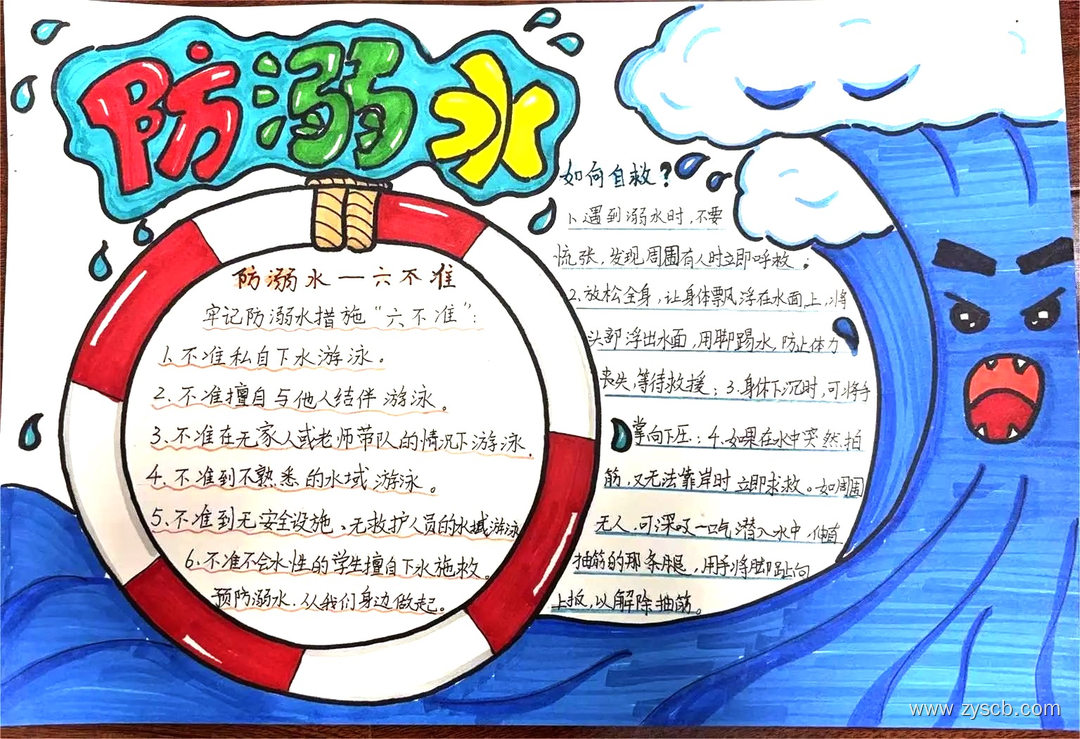 防溺水
防溺水—六不准
牢记防溺水措施“六不准”:
1、不准私自下水游泳。
2、不准擅自与他人结伴游泳。
3、不准在无家人或老师带队的情况下游泳.
4、不准到不熟悉的水域游泳。
5、不准到无安全设施、无救护人员的水域游泳
6、不准不会水性的学生擅自下水施救。
预防溺水.从我们身边做起。
如何自救?
1、遇到溺水时,不要
慌张,发现周围有人时立即呼救;
2.放松全身,让身体飘浮在水面上,将
头部浮出水面,用脚踢水,防止体力
丧失,等待救援;3.身体下沉时,可将手
掌向下压;4.如果在水中突然抽
筋,又无法靠岸时立即求救。如周围
无人.可深吸一口气潜入水中.伸直
抽筋的那条腿,用手将脚趾向
上扳,以解除抽筋。
www.zyscb.com